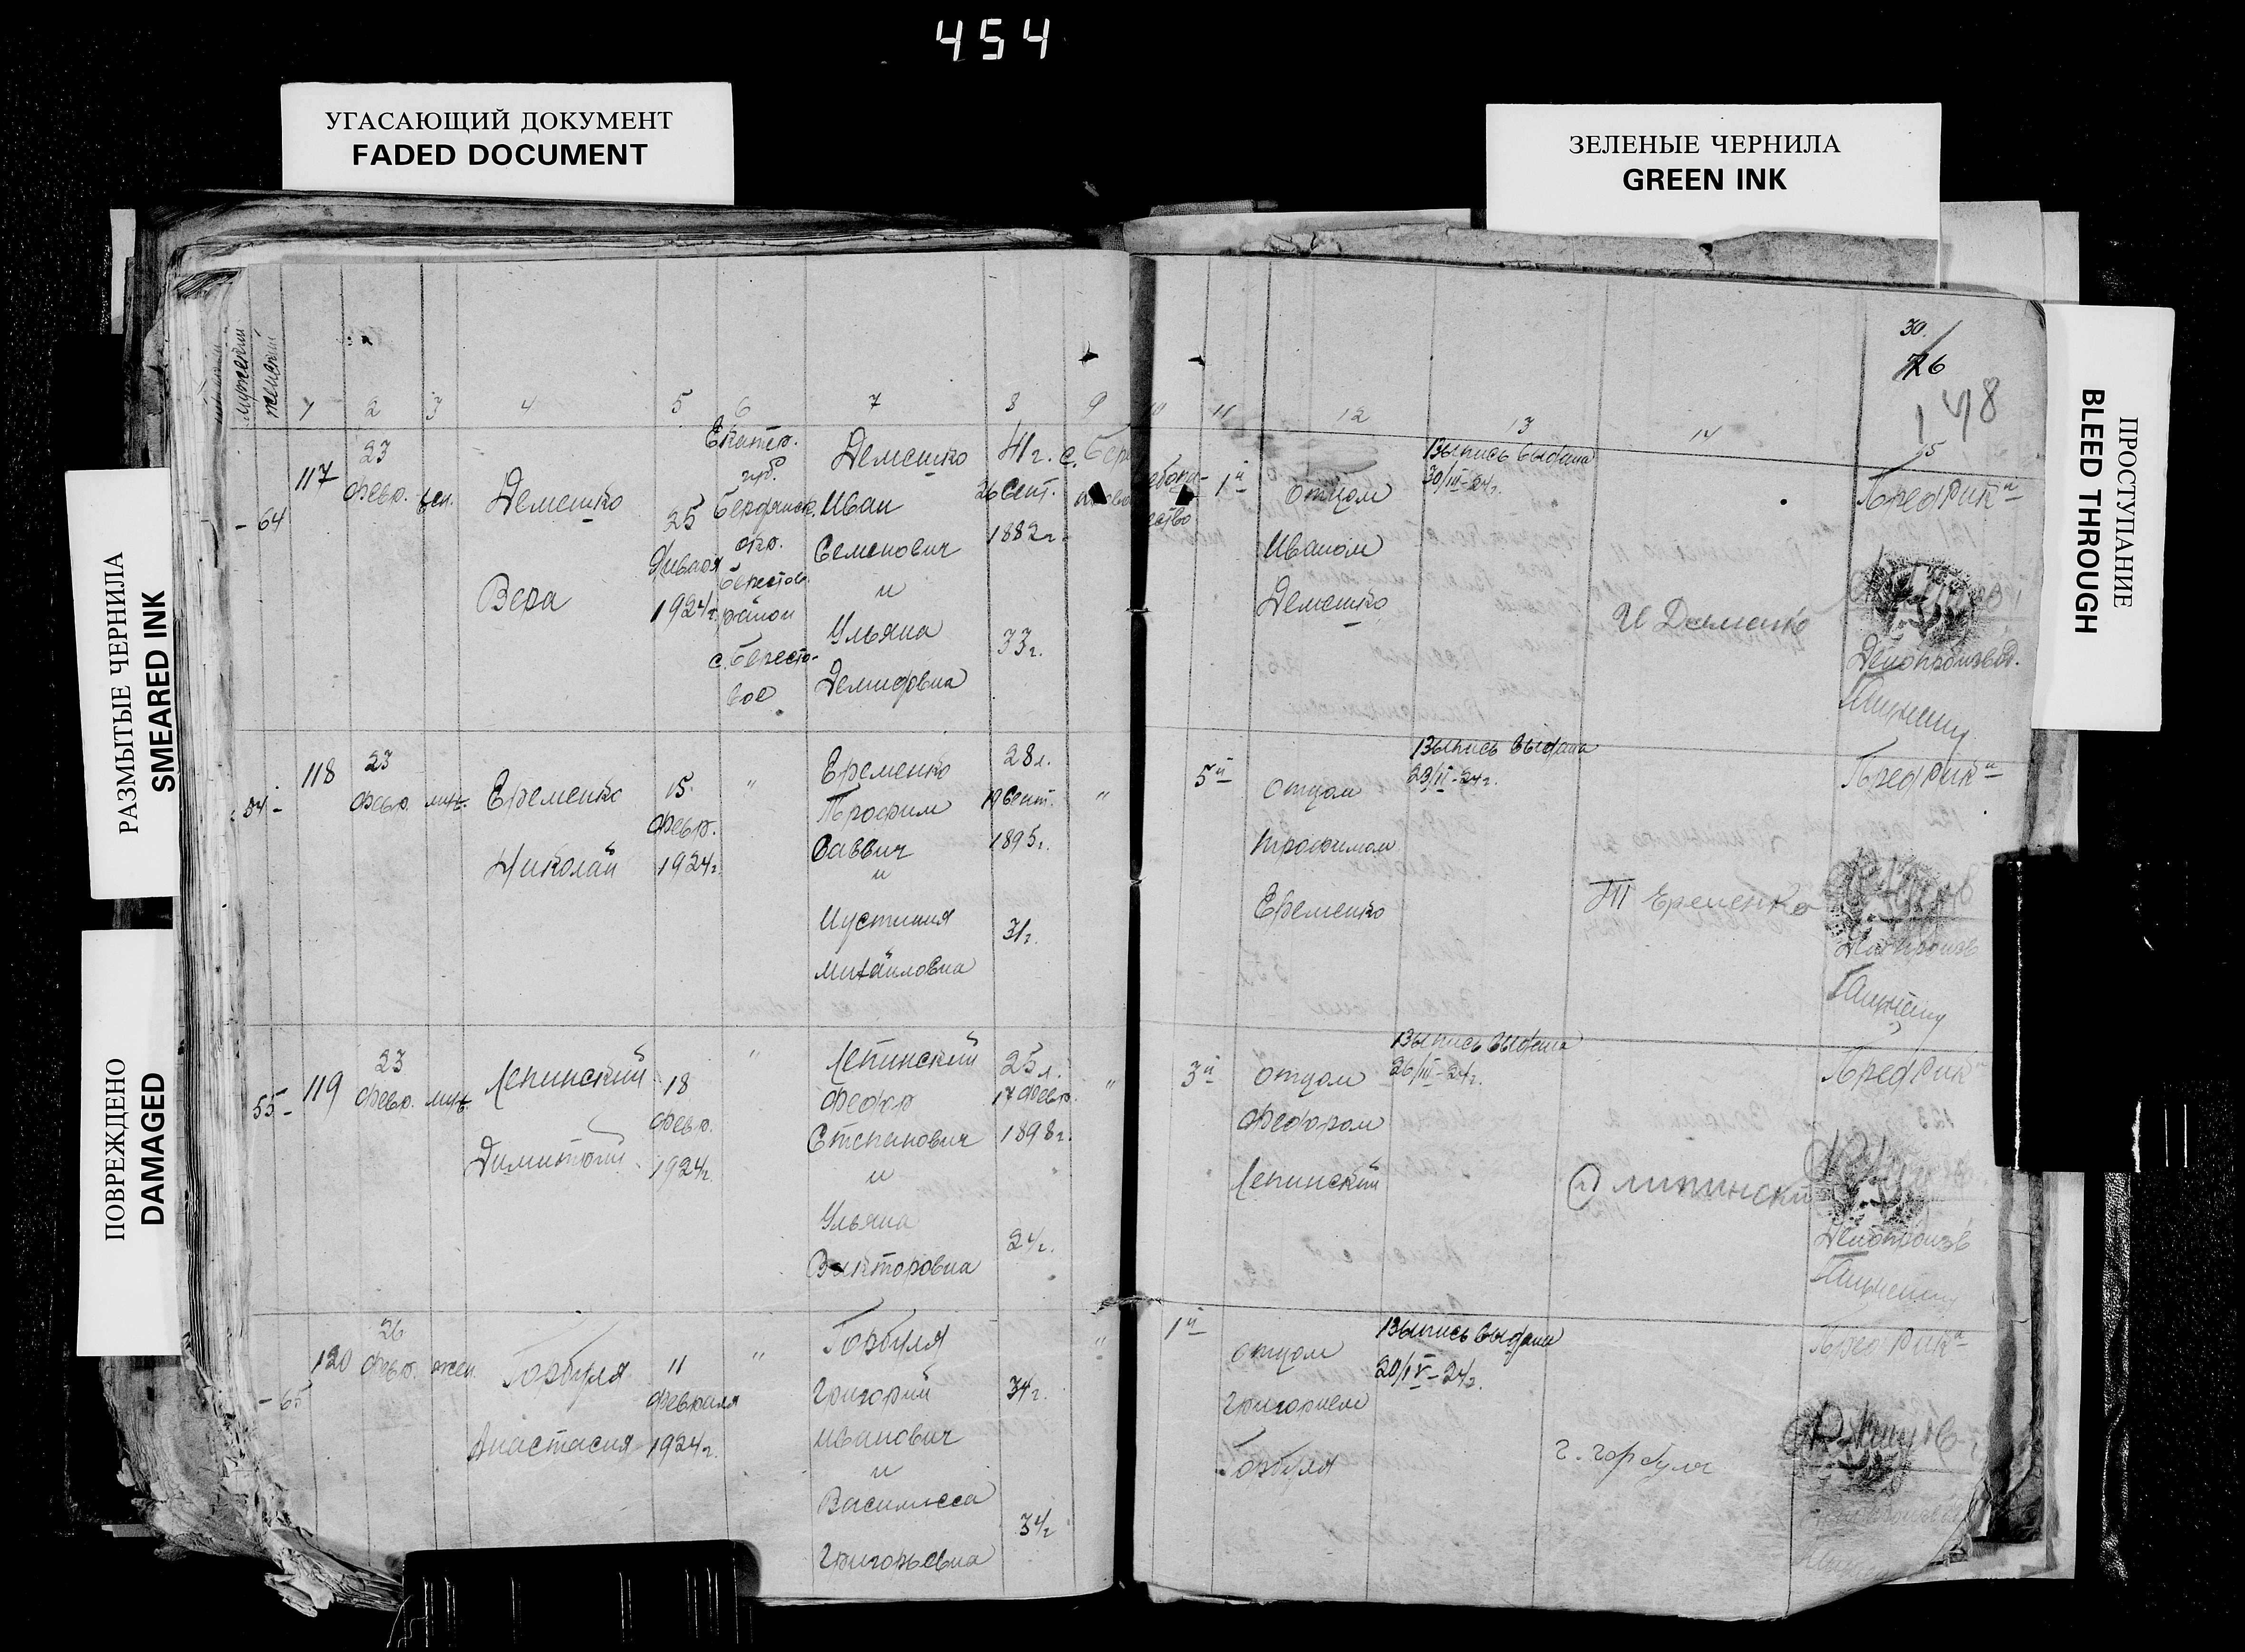 454
УГАСАЮЩИЙ ДОКУМЕНТ
FADED DOCUMENT
ЗЕЛЕНЫЕ ЧЕРНИЛА
GREEN INK
РАЗМЫТЫЕ ЧЕРНИЛА
SMEARED INK
ПОВРЕЖДЕНО
DAMAGED
ПРОСТУПАНИЕ
BLEED THROUGH
30
76
148
мужской
женский
1 2 3 4 5 6 7 8 9 10 11 12 13 14 15
117
- 64
23
февр.
жен.
Демешко
Вера
25
Января
1924г.
Екатер.
губ
Бердянск.
окр.
Берестов
район
с. Бересто-
вое
Демешко
Иван
Семенович
и
Ульяна
Демидовна
41г.
26 Сент.
1882г.
33г.
1й
отцом
Иваном
Демешко
Выпись выдана
30/III-24г.
И Демешко
Пред Рикй
Делопроизвод.
118
54 -
23
февр.
муж.
Еременко
Николай
15
февр.
1924г.
"
Еременко
Трофим
Саввич
и
Иустиния
Михайловна
28л.
19 Сент.
1895г.
31г.
"
5й
отцом
Трофимом
Еременко
Выпись выдана
29/II-24г.
Т Еременко
Пред Рикй
Делопроизв
119
55 -
23
февр.
муж.
Лепинский
Димитрий
18
февр.
1924г.
"
Лепинский
Федор
Степанович
и
Ульяна
Викторовна
25л.
17 февр.
1898г.
24г.
"
3й
отцом
Федором
Лепинский
Выпись выдана
26/III-24г.
Ф липински
Пред Рик
Делопроизв
120
- 65
26
февр.
жен.
Горбуля
Анастасия
11
февраля
1924г.
"
Горбуля
Григорий
Иванович
и
Василисса
Григорьевна
34г.
34г
"
1й
отцом
Григорием
Горбуля
Выпись выдана
20/IV-24г.
г. горбуля
Пред Рикй